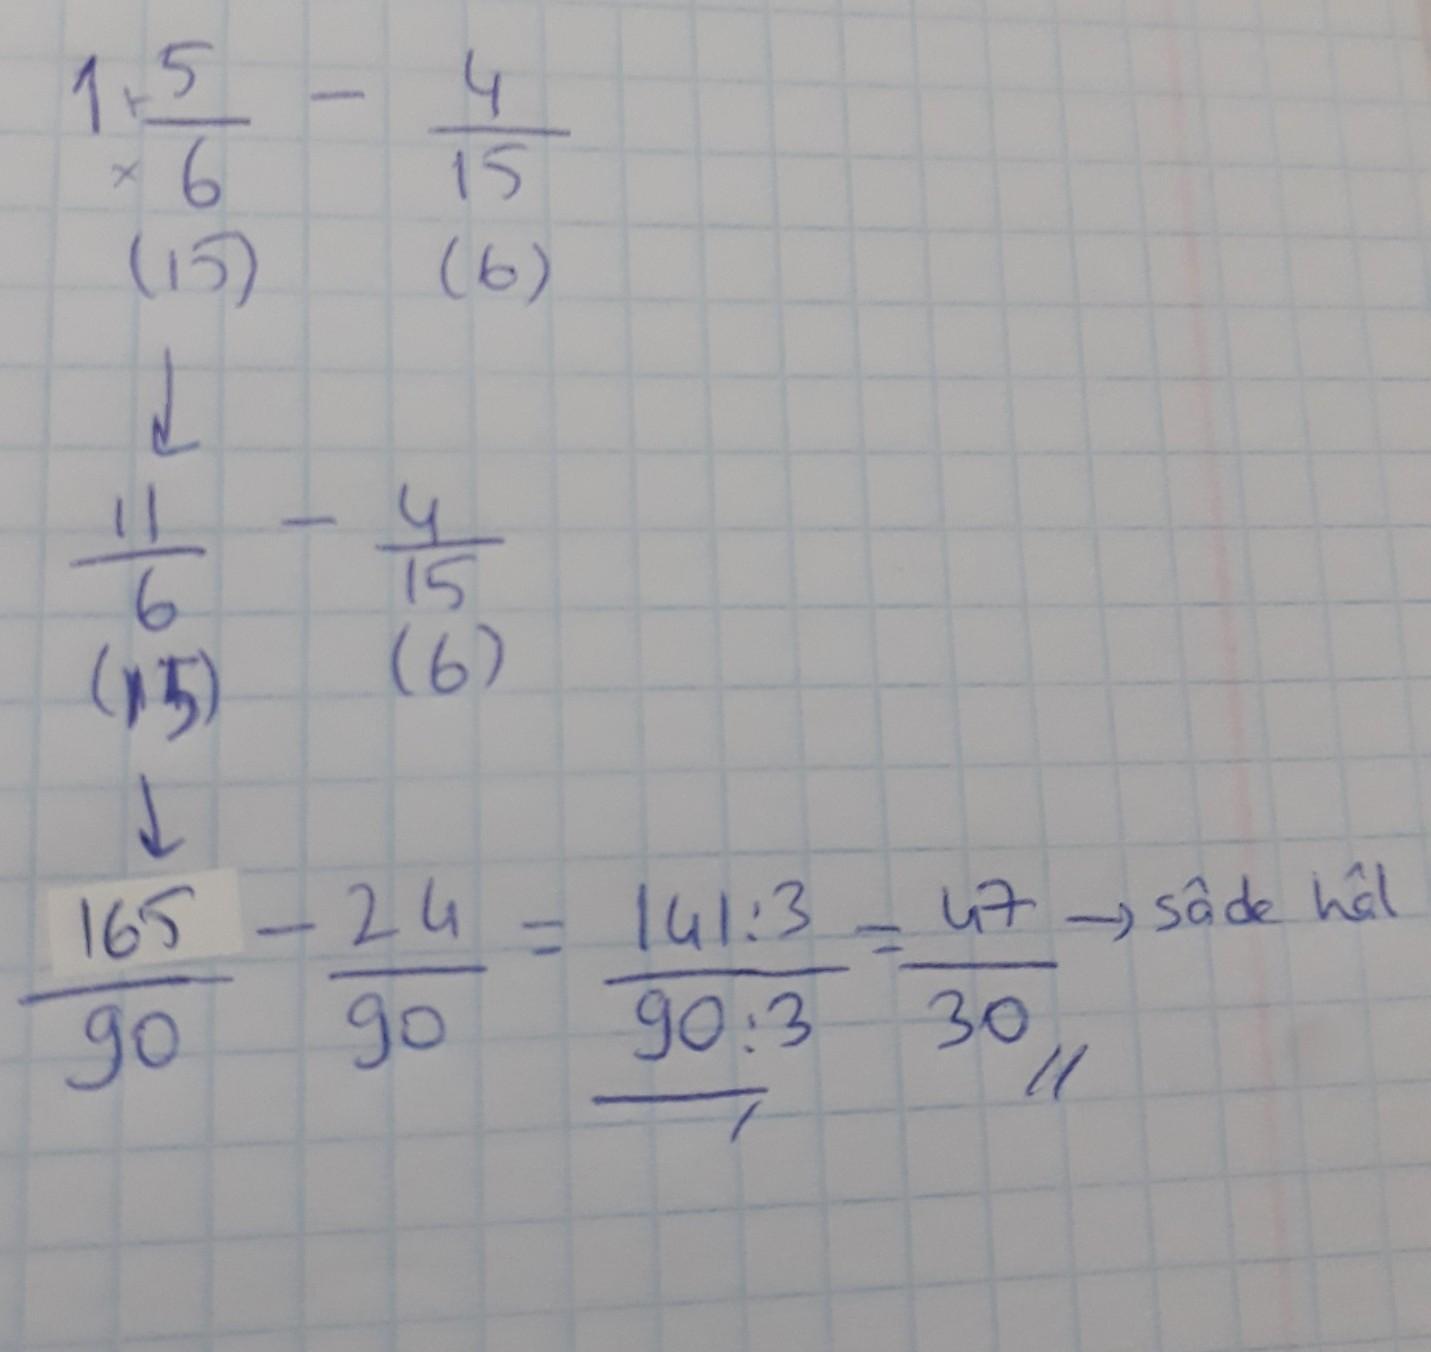 1 + 5/6 - 4/15
×
(15) (6)
↓
11/6 - 4/15
(15) (6)
↓
165/90 - 24/90 = 141:3/90:3 = 47/30 → sâde hâl